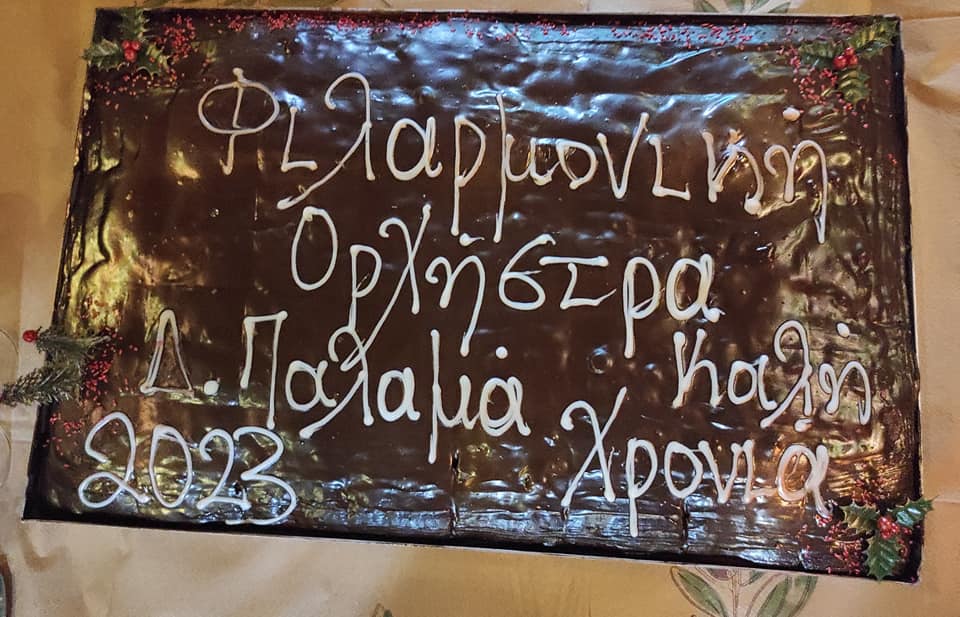 Φιλαρμονική
Ορχήστρα
Δ. Παλαμά Καλή
2023 Χρονιά